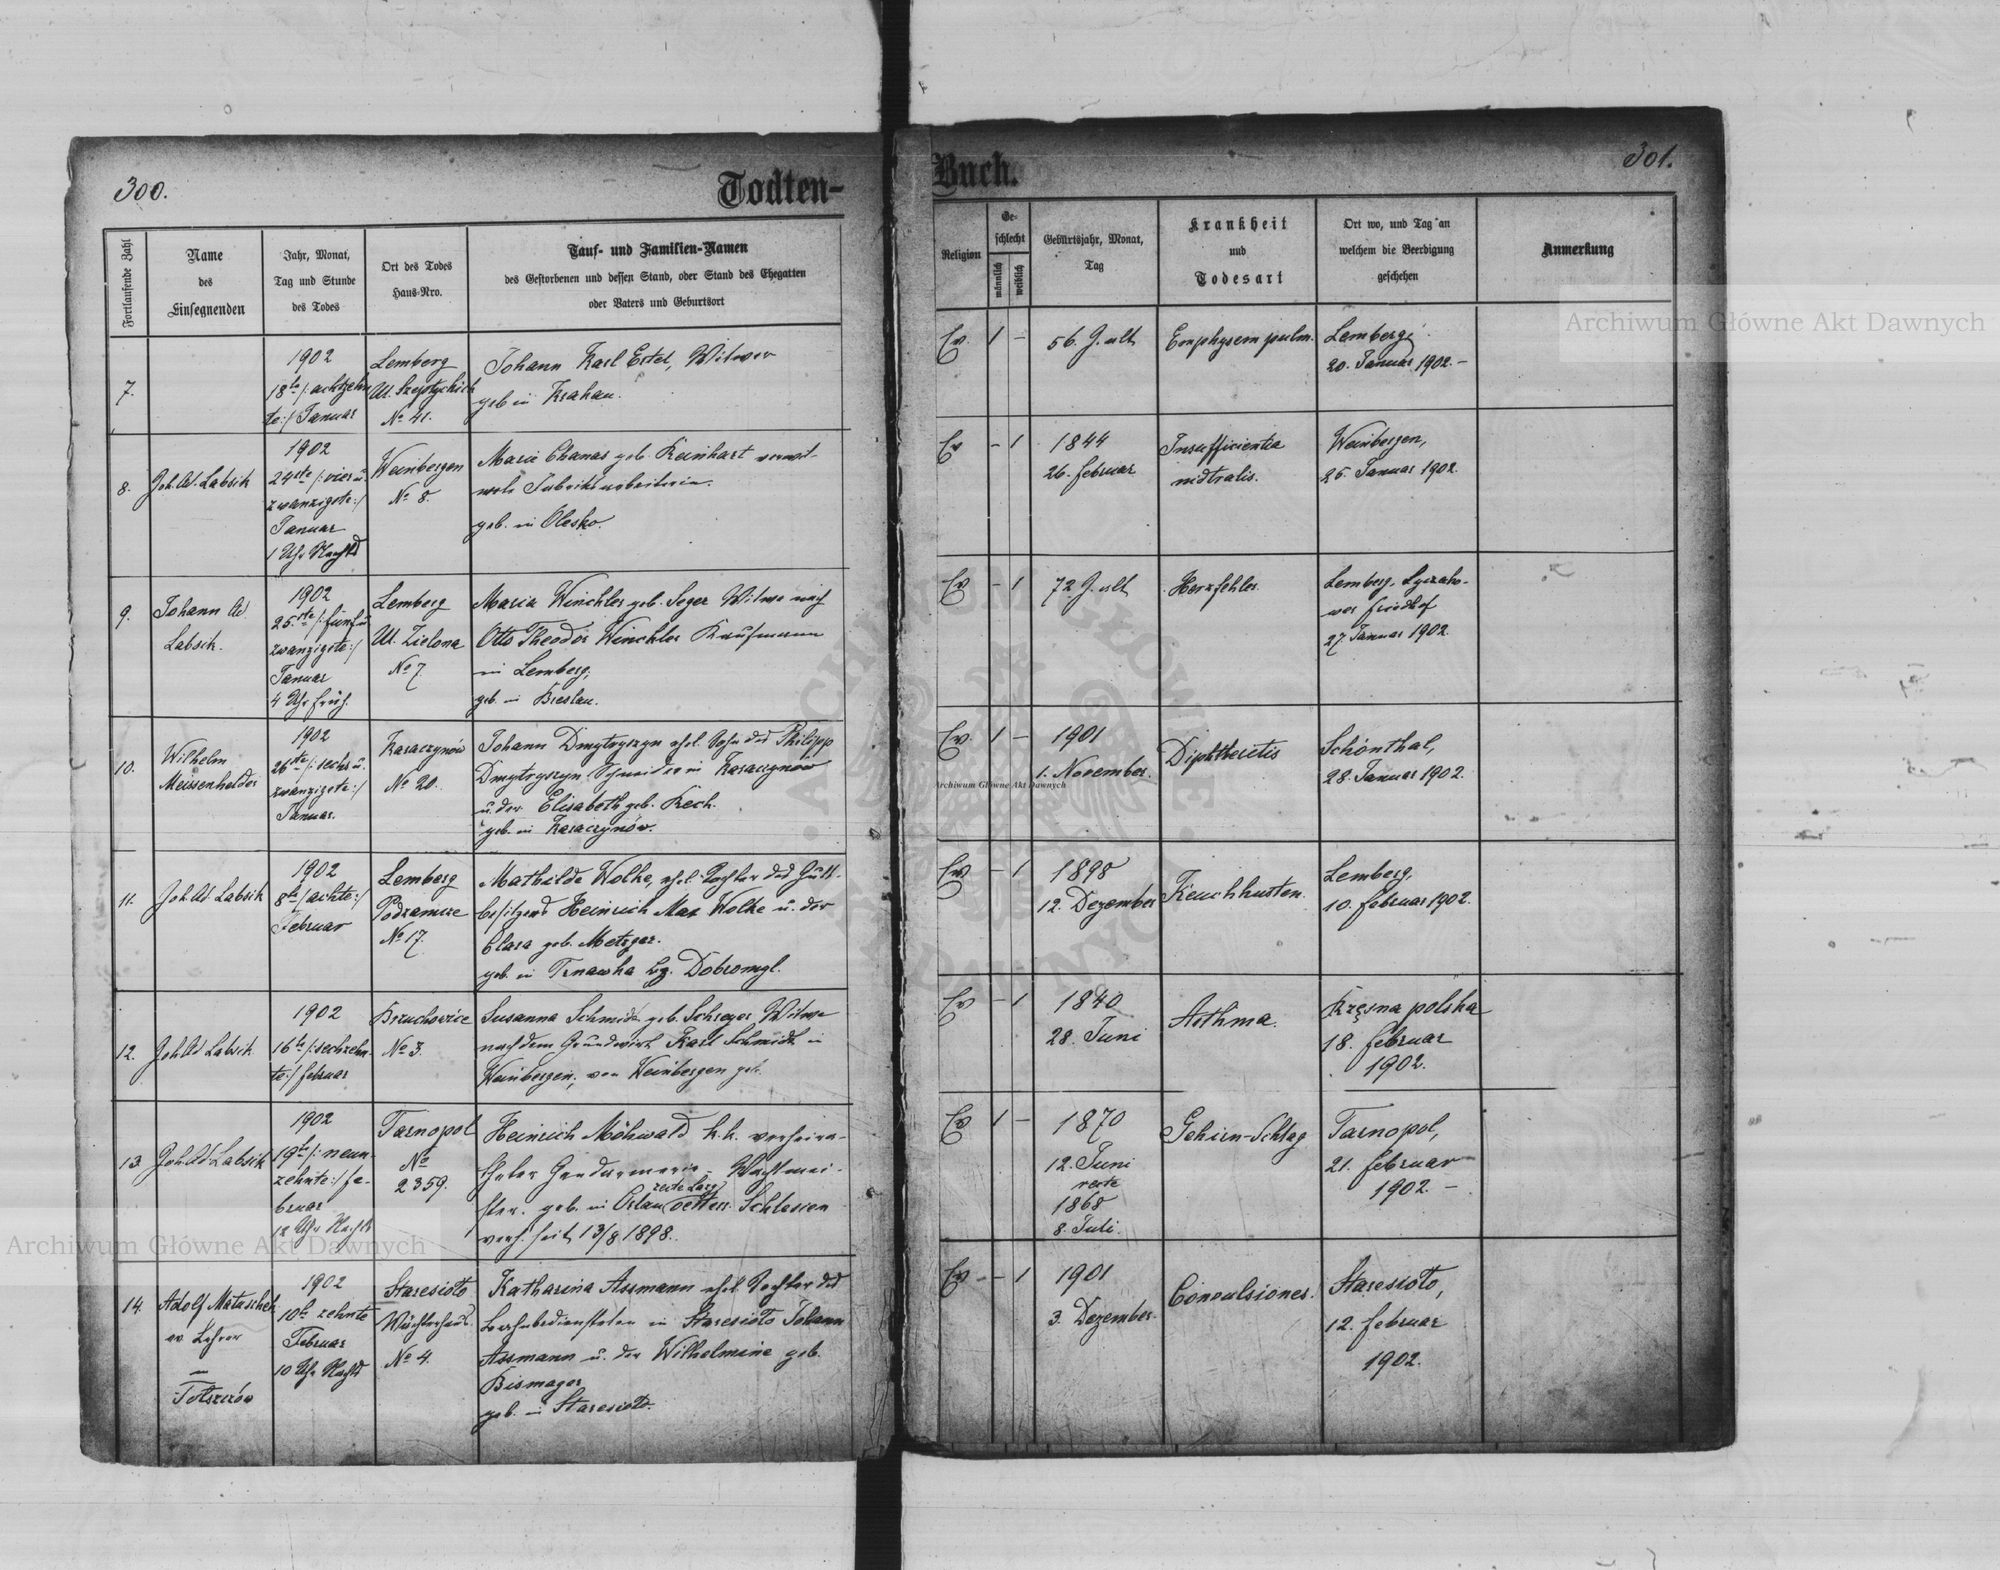 300.
Todten-
Buch.
301.
Fortlaufende Zahl
Name
des
Einsegnenden
Jahr, Monat,
Tag und Stunde
des Todes
Ort des Todes
Haus-Nro.
Tauf- und Familien-Namen
des Gestorbenen und dessen Stand, oder Stand des Ehegatten
oder Vaters und Geburtsort
Religion
Ge-
schlecht
männlich
weiblich
Geburtsjahr, Monat,
Tag
Krankheit
und
Todesart
Ort wo, und Tag an
welchem die Beerdigung
geschehen
Anmerkung
7.
1902
18te /: achtzehn
te :/ Januar
Lemberg
Ul. Szeptyckich
No 41.
Johann Karl Ertel, Witwer
geb in Krakau.
Ev. 1 –
56. J. alt
Emphysem pulm.
Lemberg
20. Januar 1902. –
8.
Joh. Ad. Labsik
1902
24ste /: vier u.
zwanzigste :/
Januar
1 Uhr Nachts
Weinbergen
No 8.
Marie Chanas geb. Reinhart verwit-
wete Fabriksarbeiterin.
geb. in Olesko.
Ev – 1
1844
26. Februar
Insufficientia
midtralis.
Weinbergen,
25. Januar 1902.
9.
Johann Ad
Labsik.
1902
25.ste /: fünf u
zwanzigste :/
Januar
4 Uhr früh.
Lemberg
Ul. Zielona
No 7.
Maria Winckler geb. Seger Witwe nach
Otto Theodor Winckler Kaufmann
in Lemberg,
geb. in Breslau.
Ev – 1
72 J. alt
Herzfehler
Lemberg, Lyczako-
wer Friedhof
27. Januar 1902.
10.
Wilhelm
Meissenhelder
1902
26ste /: sechs u.
zwanzigste :/
Januar.
Karaczynów
No 20.
Johann Dmytryszyn ehel. Sohn des Philipp
Dmytryszyn Schneider in Karaczynów
u. der Elisabeth geb. Kech.
geb. in Karaczynów.
Ev. 1 –
1901
1. November.
Diphtheritis
Schönthal,
28. Januar 1902.
11.
Joh. Ad. Labsik
1902
8te / achte :/
Februar
Lemberg
Podzamcze
No 17.
Mathilde Wolke, ehel. Tochter des Guts-
besitzers Heinrich Max Wolke u. der
Clara geb. Metzger.
geb. in Trnawka Bz. Dobromyl.
Ev – 1
1898
12. Dezember
Keuchhusten.
Lemberg,
10. Februar 1902.
12.
Joh. Ad Labsik
1902
16te /: sechzehn-
te :/ Februar
Brzuchowice
No 3.
Susanna Schmidt geb. Schreyer Witwe
nach dem Grundwirt Karl Schmidt in
Weinbergen, von Weinbergen geb.
Ev – 1
1840
28. Juni
Asthma.
Krzesna polska
18. Februar
1902.
13.
Joh. Ad Labsik
1902
19te /: neun-
zehnte :/ Fe-
bruar
12 Uhr Nachts
Tarnopol
No
2359.
Heinrich Möhwald k.k. verheira-
theter Gendarmerie-Wachtmei-
ster. geb. in Orlau (oesterr. Schlesien
recte Lazy
verh. seit 13/8 1898.
Ev 1 –
1870
12. Juni
recte
1868
8. Juli.
Gehirn-Schlag
Tarnopol,
21. Februar
1902. –
14.
Adolf Matuschek
ev Lehrer
Tołszczów
1902
10te zehnte
Februar
10 Uhr Nachts
Staresioło
Wächterhaus
No 4.
Katharina Assmann ehel. Tochter des
Bahnbediensteten in Staresioło Johann
Assmann u. der Wilhelmine geb.
Bismayer
geb. in Staresioło.
Ev – – 1
1901
3. Dezember.
Convulsionen.
Staresioło,
12. Februar
1902.
Archiwum Główne Akt Dawnych
Archiwum Główne Akt Dawnych
Archiwum Główne Akt Dawnych